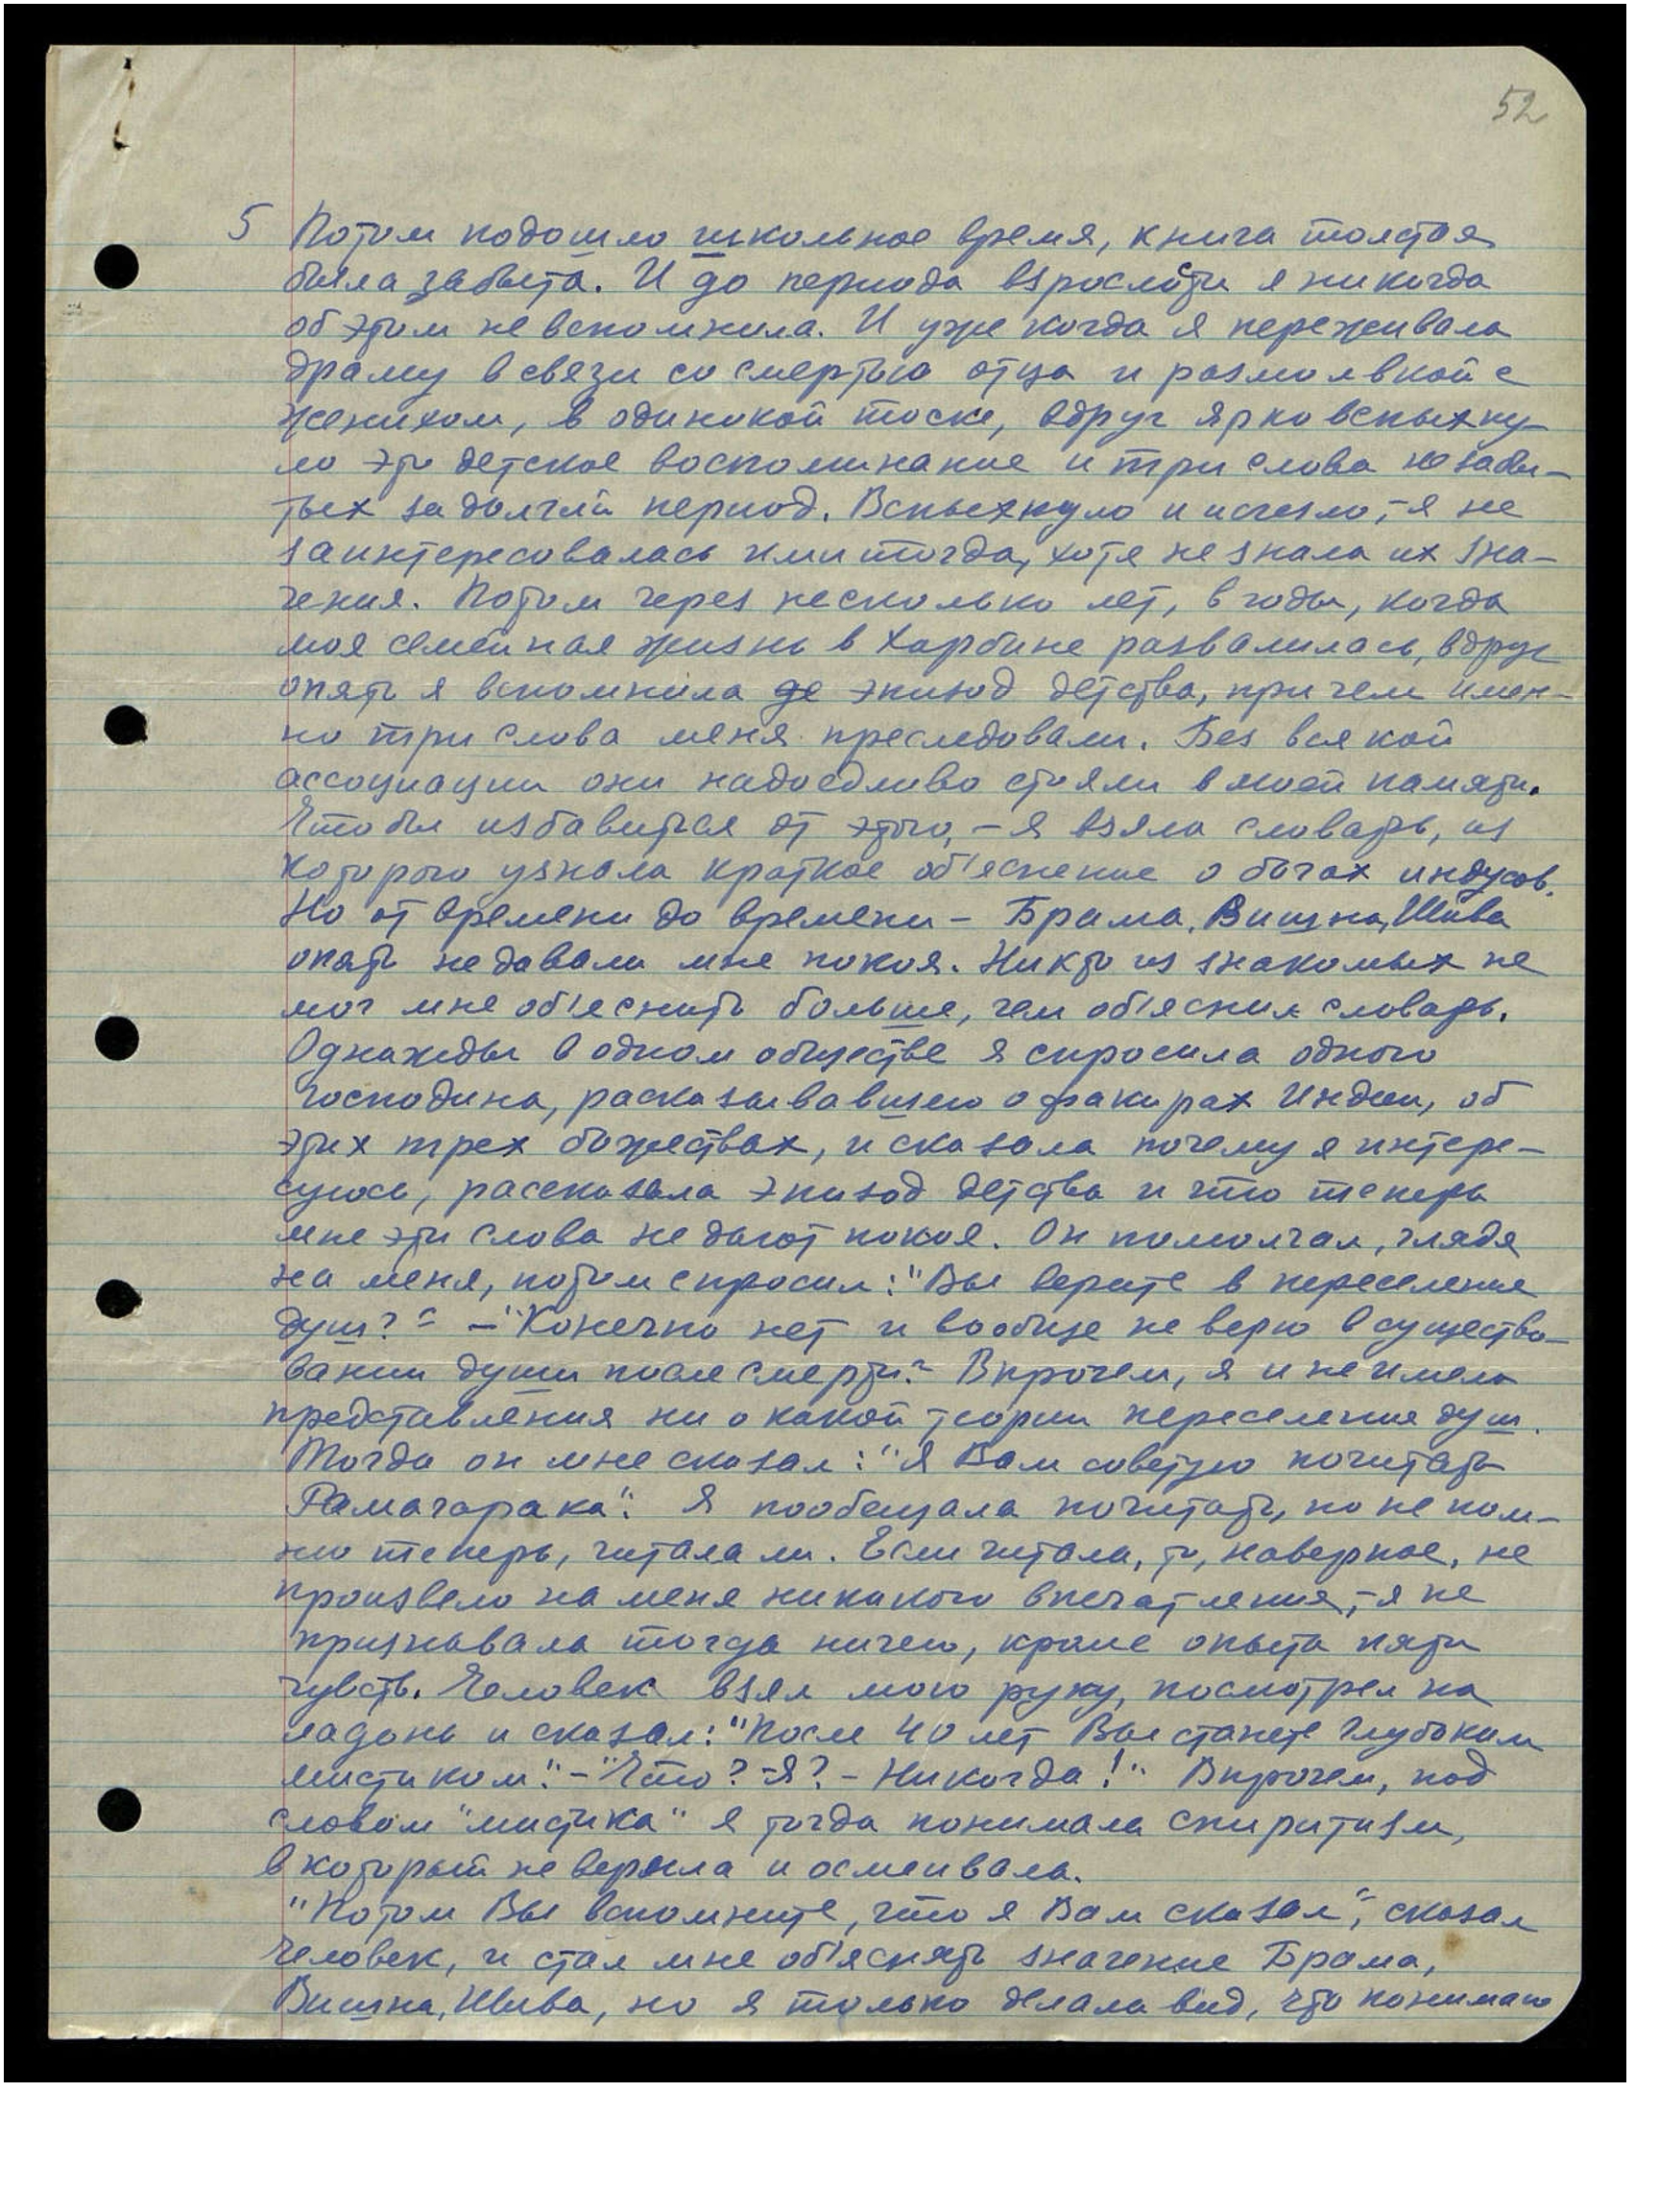 52
5 Потом подошло школьное время, книга толстая
была забыта. И до периода взрослости я никогда
об этом не вспомнила. И уже когда я переживала
драму в связи со смертью отца и размолвкой с
женихом, в одинокой тоске, вдруг ярко вспыхну-
ло это детское воспоминание и три слова незабы-
тых за долгий период. Вспыхнуло и исчезло, - я не
заинтересовалась ими тогда, хотя не знала их зна-
чения. Потом через несколько лет, в годы, когда
моя семейная жизнь в Харбине развалилась, вдруг
опять я вспомнила эпизод детства, при чем имен-
но три слова меня преследовали. Без всякой
ассоциации они надоедливо стояли в моей памяти.
Чтобы избавиться от этого, - я взяла словарь, из
которого узнала краткое об'яснение о богах индусов.
Но от времени до времени - Брама, Вишна, Шива
опять не давали мне покоя. Никто из знакомых не
мог мне об'яснить больше, чем об'яснил словарь.
Однажды в одном обществе я спросила одного
господина, расказывавшего о факирах Индии, об
этих трех божествах, и сказала почему я интере-
суюсь, рассказала эпизод детства и что теперь
мне эти слова не дают покоя. Он помолчал, глядя
на меня, потом спросил: "Вы верите в переселение
душ?" - "Конечно нет и вообще не верю в существо-
вании души после смерти." Впрочем, я и не имела
представления ни о какой теории переселения душ.
Тогда он мне сказал: "Я Вам советую почитать
Рамачарака". Я пообещала почитать, но не пом-
ню теперь, читала ли. Если читала, то, наверное, не
произвело на меня никакого впечатления, - я не
признавала тогда ничего, кроме опыта пяти
чувств. Человек взял мою руку, посмотрел на
ладонь и сказал: "После 40 лет Вы станете глубоким
мистиком". - "Что? - Я? - Никогда!" Впрочем, под
словом "мистика" я тогда понимала спиритизм,
в который не верила и осмеивала.
"Потом Вы вспомните, что я Вам сказал", сказал
человек, и стал мне об'яснять значение Брама,
Вишна, Шива, но я только делала вид, что понимаю